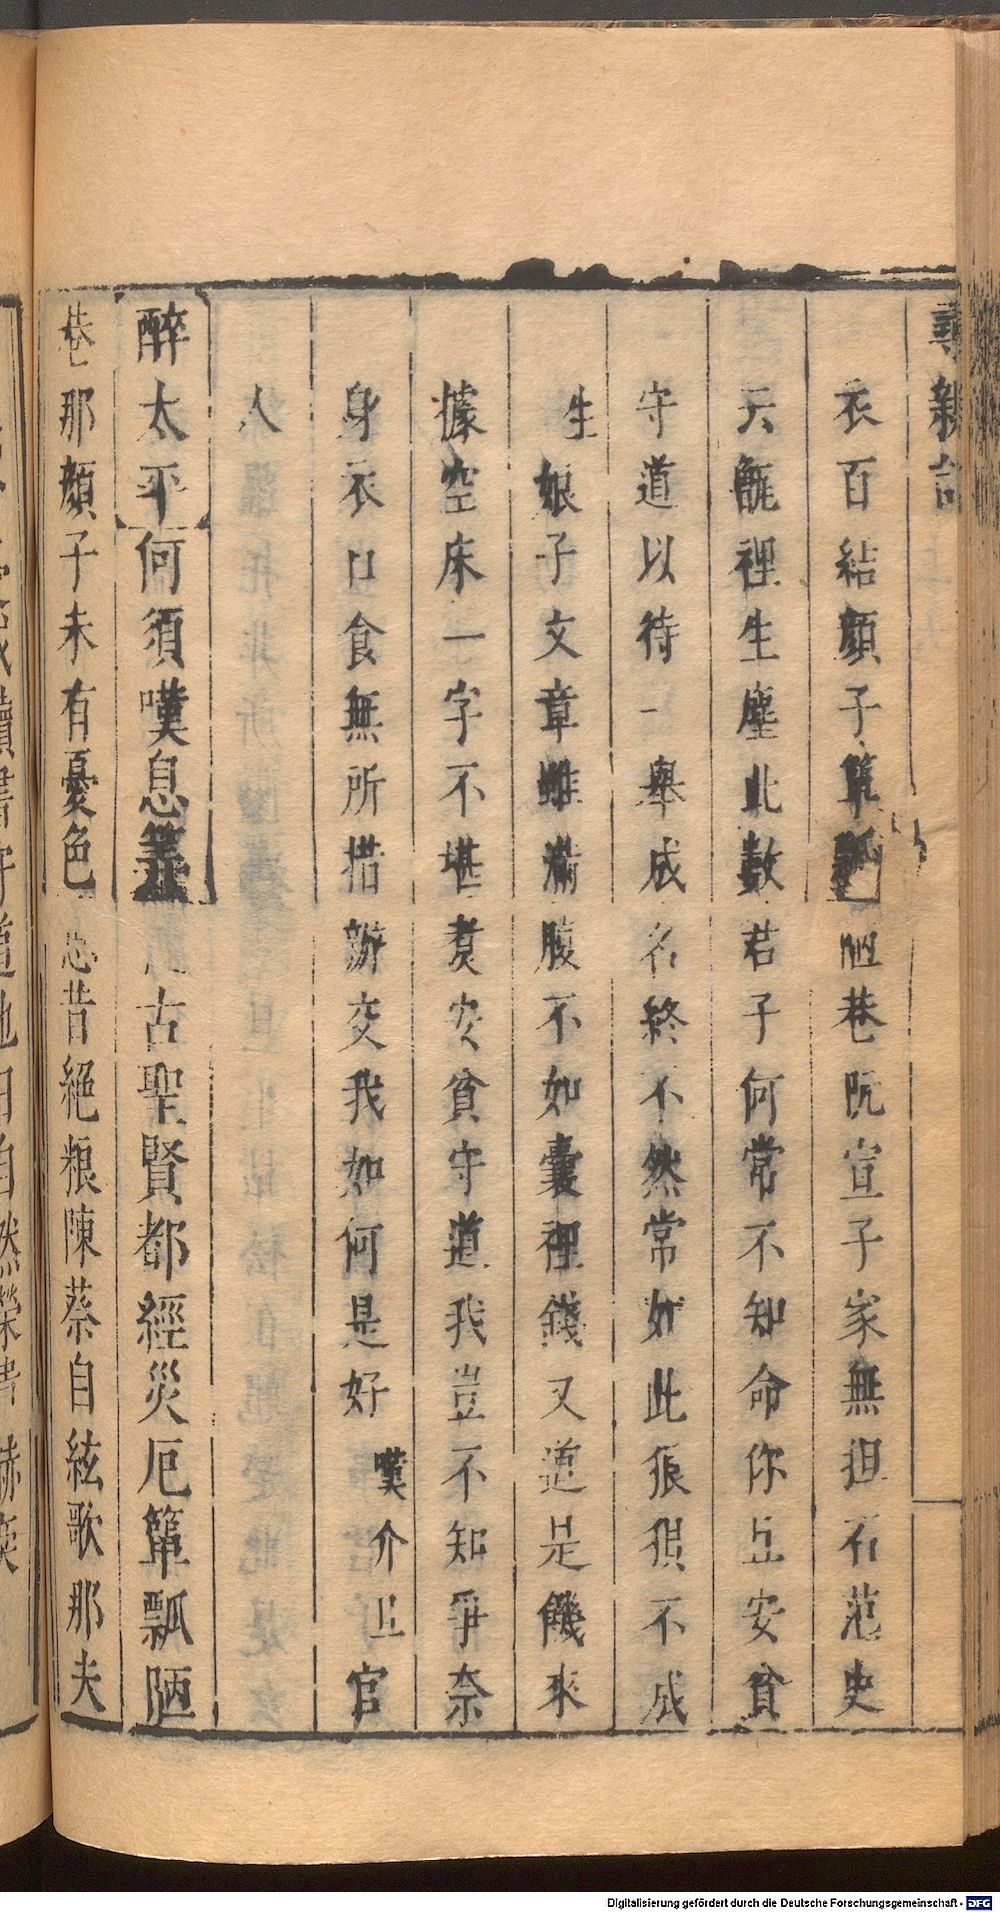 尋親記
衣百結顏子簞瓢陋巷阮宣子家無担石范史
天甑裡生塵此數君子何常不知命你且安貧
守道以待一舉成名終不然常如此狼狽不成
生娘子文章雖滿腹不如囊裡錢又道是饑來
據空床一字不堪煑安貧守道我豈不知爭奈
身衣口食無所措辦交我如何是好嘆介旦官
人
醉太平何須嘆息 古聖賢都經災厄簞瓢陋
巷那顏子未有憂色 昔絕粮陳蔡自絃歌那夫
Digitalisierung gefördert durch die Deutsche Forschungsgemeinschaft - DFG